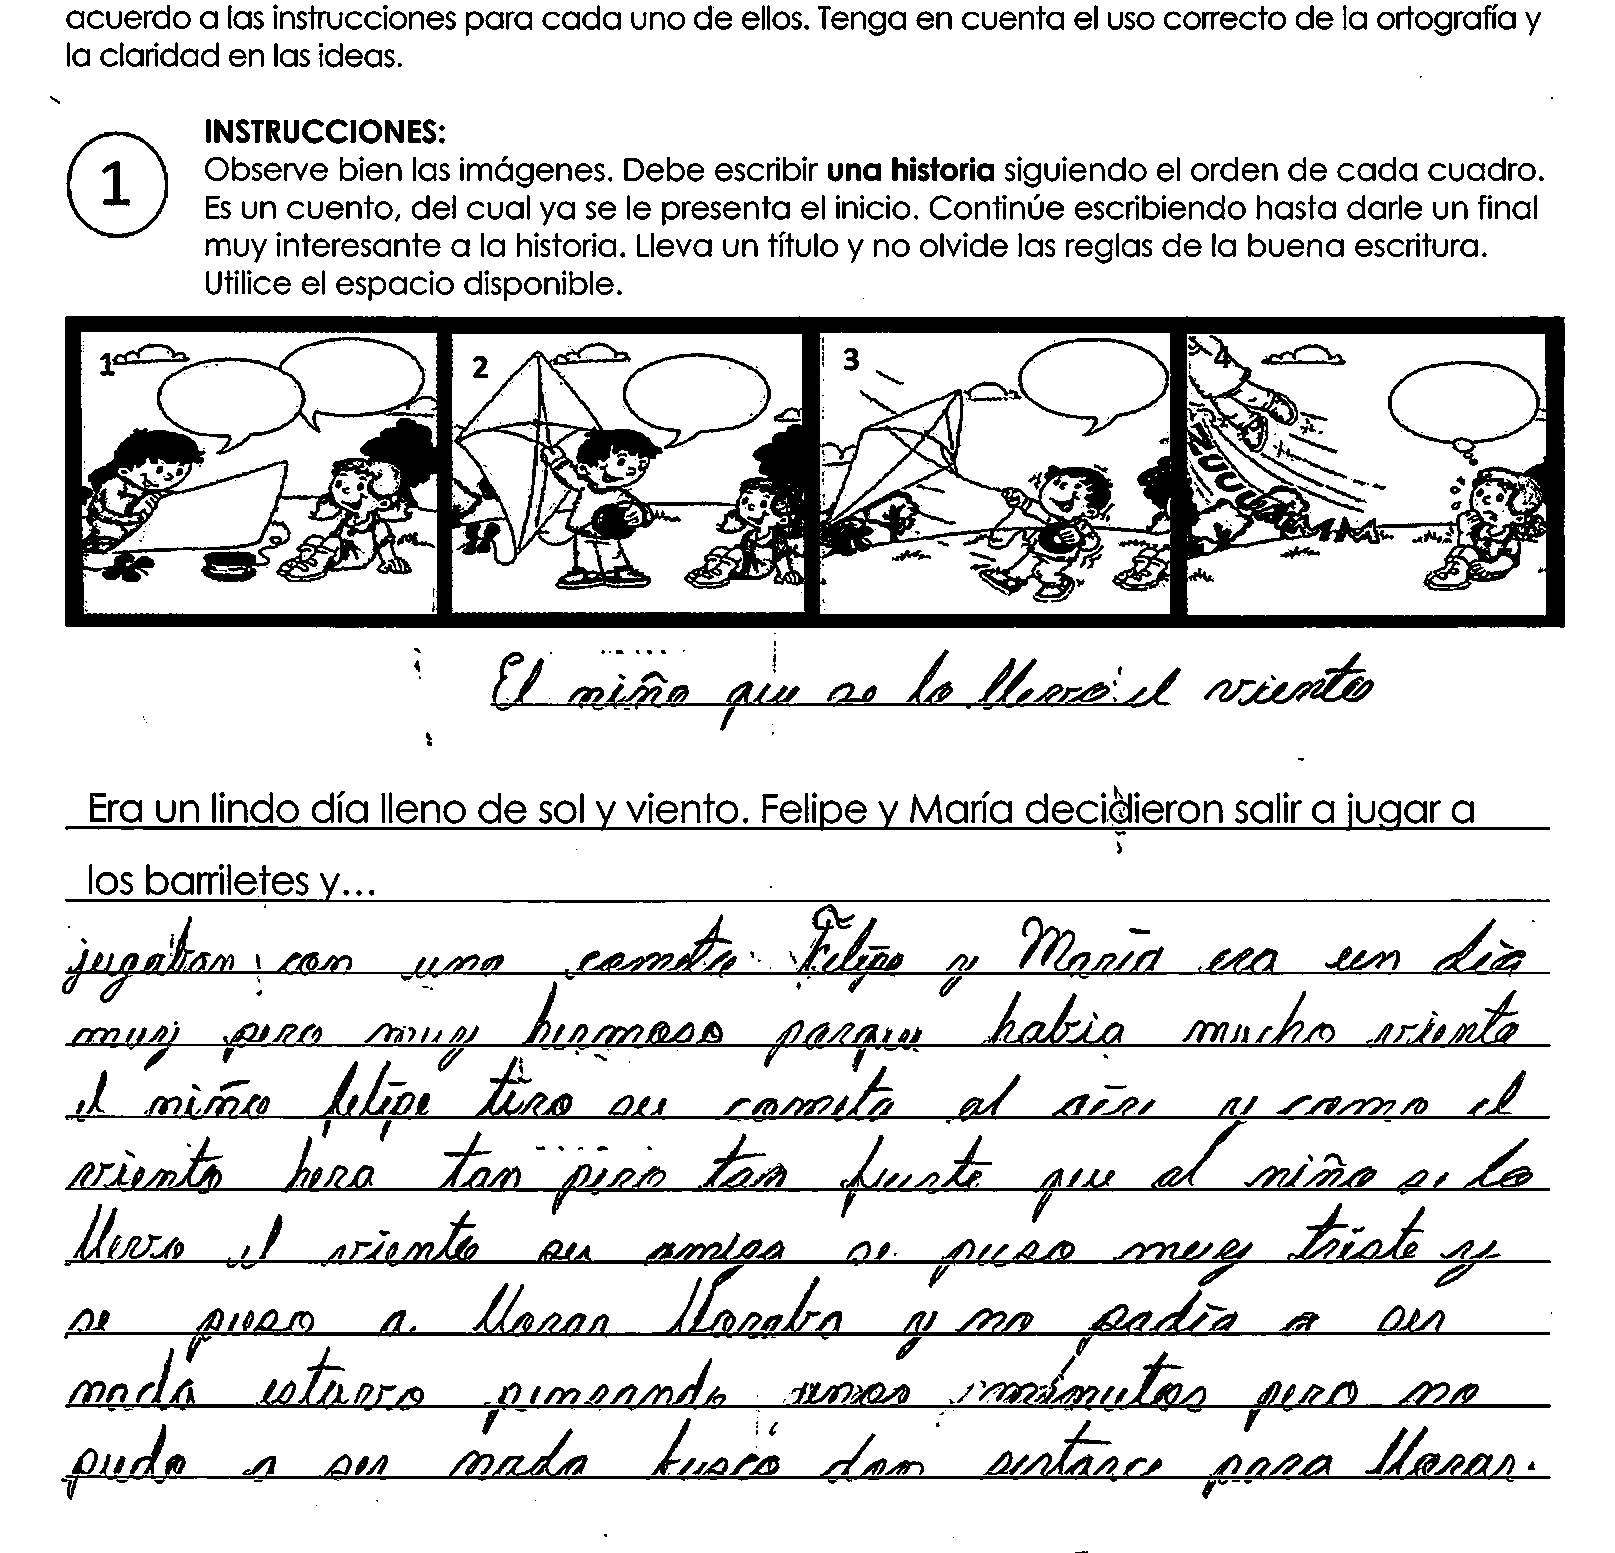 acuerdo a las instrucciones para cada uno de ellos. Tenga en cuenta el uso correcto de la ortografía y
la claridad en las ideas.
1
INSTRUCCIONES:
Observe bien las imágenes. Debe escribir una historia siguiendo el orden de cada cuadro.
Es un cuento, del cual ya se le presenta el inicio. Continúe escribiendo hasta darle un final
muy interesante a la historia. Lleva un título y no olvide las reglas de la buena escritura.
Utilice el espacio disponible.
1 2 3 4
El niño que se lo llevo el viento
Era un lindo día lleno de sol y viento. Felipe y María decidieron salir a jugar a
los barriletes y...
jugaban con una cometa Felipe y María era un día
muy pero muy hermoso porque habia mucho viento
el niño felipe tiro su cometa al aire y como el
viento hera tan pero tan fuerte que al niño se lo
llevo el viento su amiga se puso muy triste y
se puso a llorar lloraba y no podía a ser
nada estuvo pensando unos minutos pero no
pudo a ser nada buscó don sentarce para llorar.